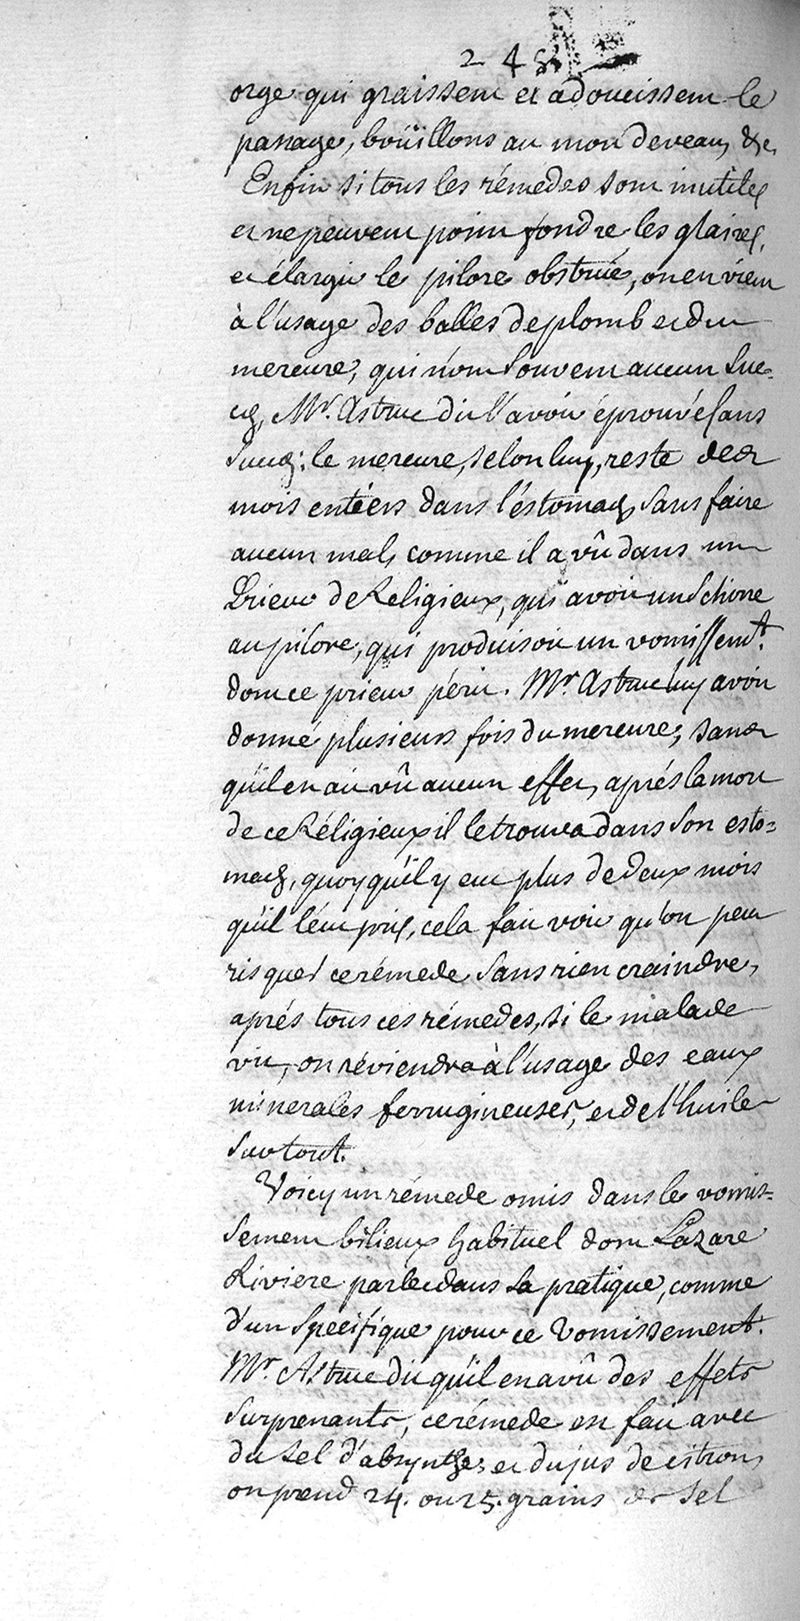 248
orge qui graissent et adoucissent le
passage, boüillons au mou de veau, &c.
Enfin si tous les rémedes sont inutiles
et ne peuvent point fondre les glaires,
et élargir le pilore obstrué, on en vient
à l'usage des balles de plomb et du
mercure, qui n'ont souvent aucun suc-
cés, Mr. Astruc dit l'avoir éprouvé sans
succés: le mercure, selon luy, reste des
mois entiers dans l'éstomach sans faire
aucun mal, comme il a vû dans un
Prieur de Religieux, qui avoit un Schirre
au pilore, qui produisoit un vomissemt.
dont ce prieur périt. Mr. Astruc luy avoit
donné plusieurs fois du mercure, sans
qu'il en ait vû aucun effet, aprés la mort
de ce Réligieux il le trouva dans son esto=
mach, quoyqu'il y eut plus de deux mois
qu'il l'eut pris, cela fait voir qu'on peut
risquer ce rémede sans rien craindre,
aprés tous ces rémedes, si le malade
vit, on réviendra à l'usage des eaux
minerales ferrugineuses, et de l'huile
surtout.
Voicy un rémede omis dans le vomis=
sement bilieux habituel dont Lazare
Riviere parle dans sa pratique, comme
d'un specifique pour ce vomissement.
Mr. Astruc dit qu'il en a vû des effets
surprenants, ce rémede est fait avec
du sel d'absynthe, et du jus de citron,
on prend 24. ou 25. grains de sel